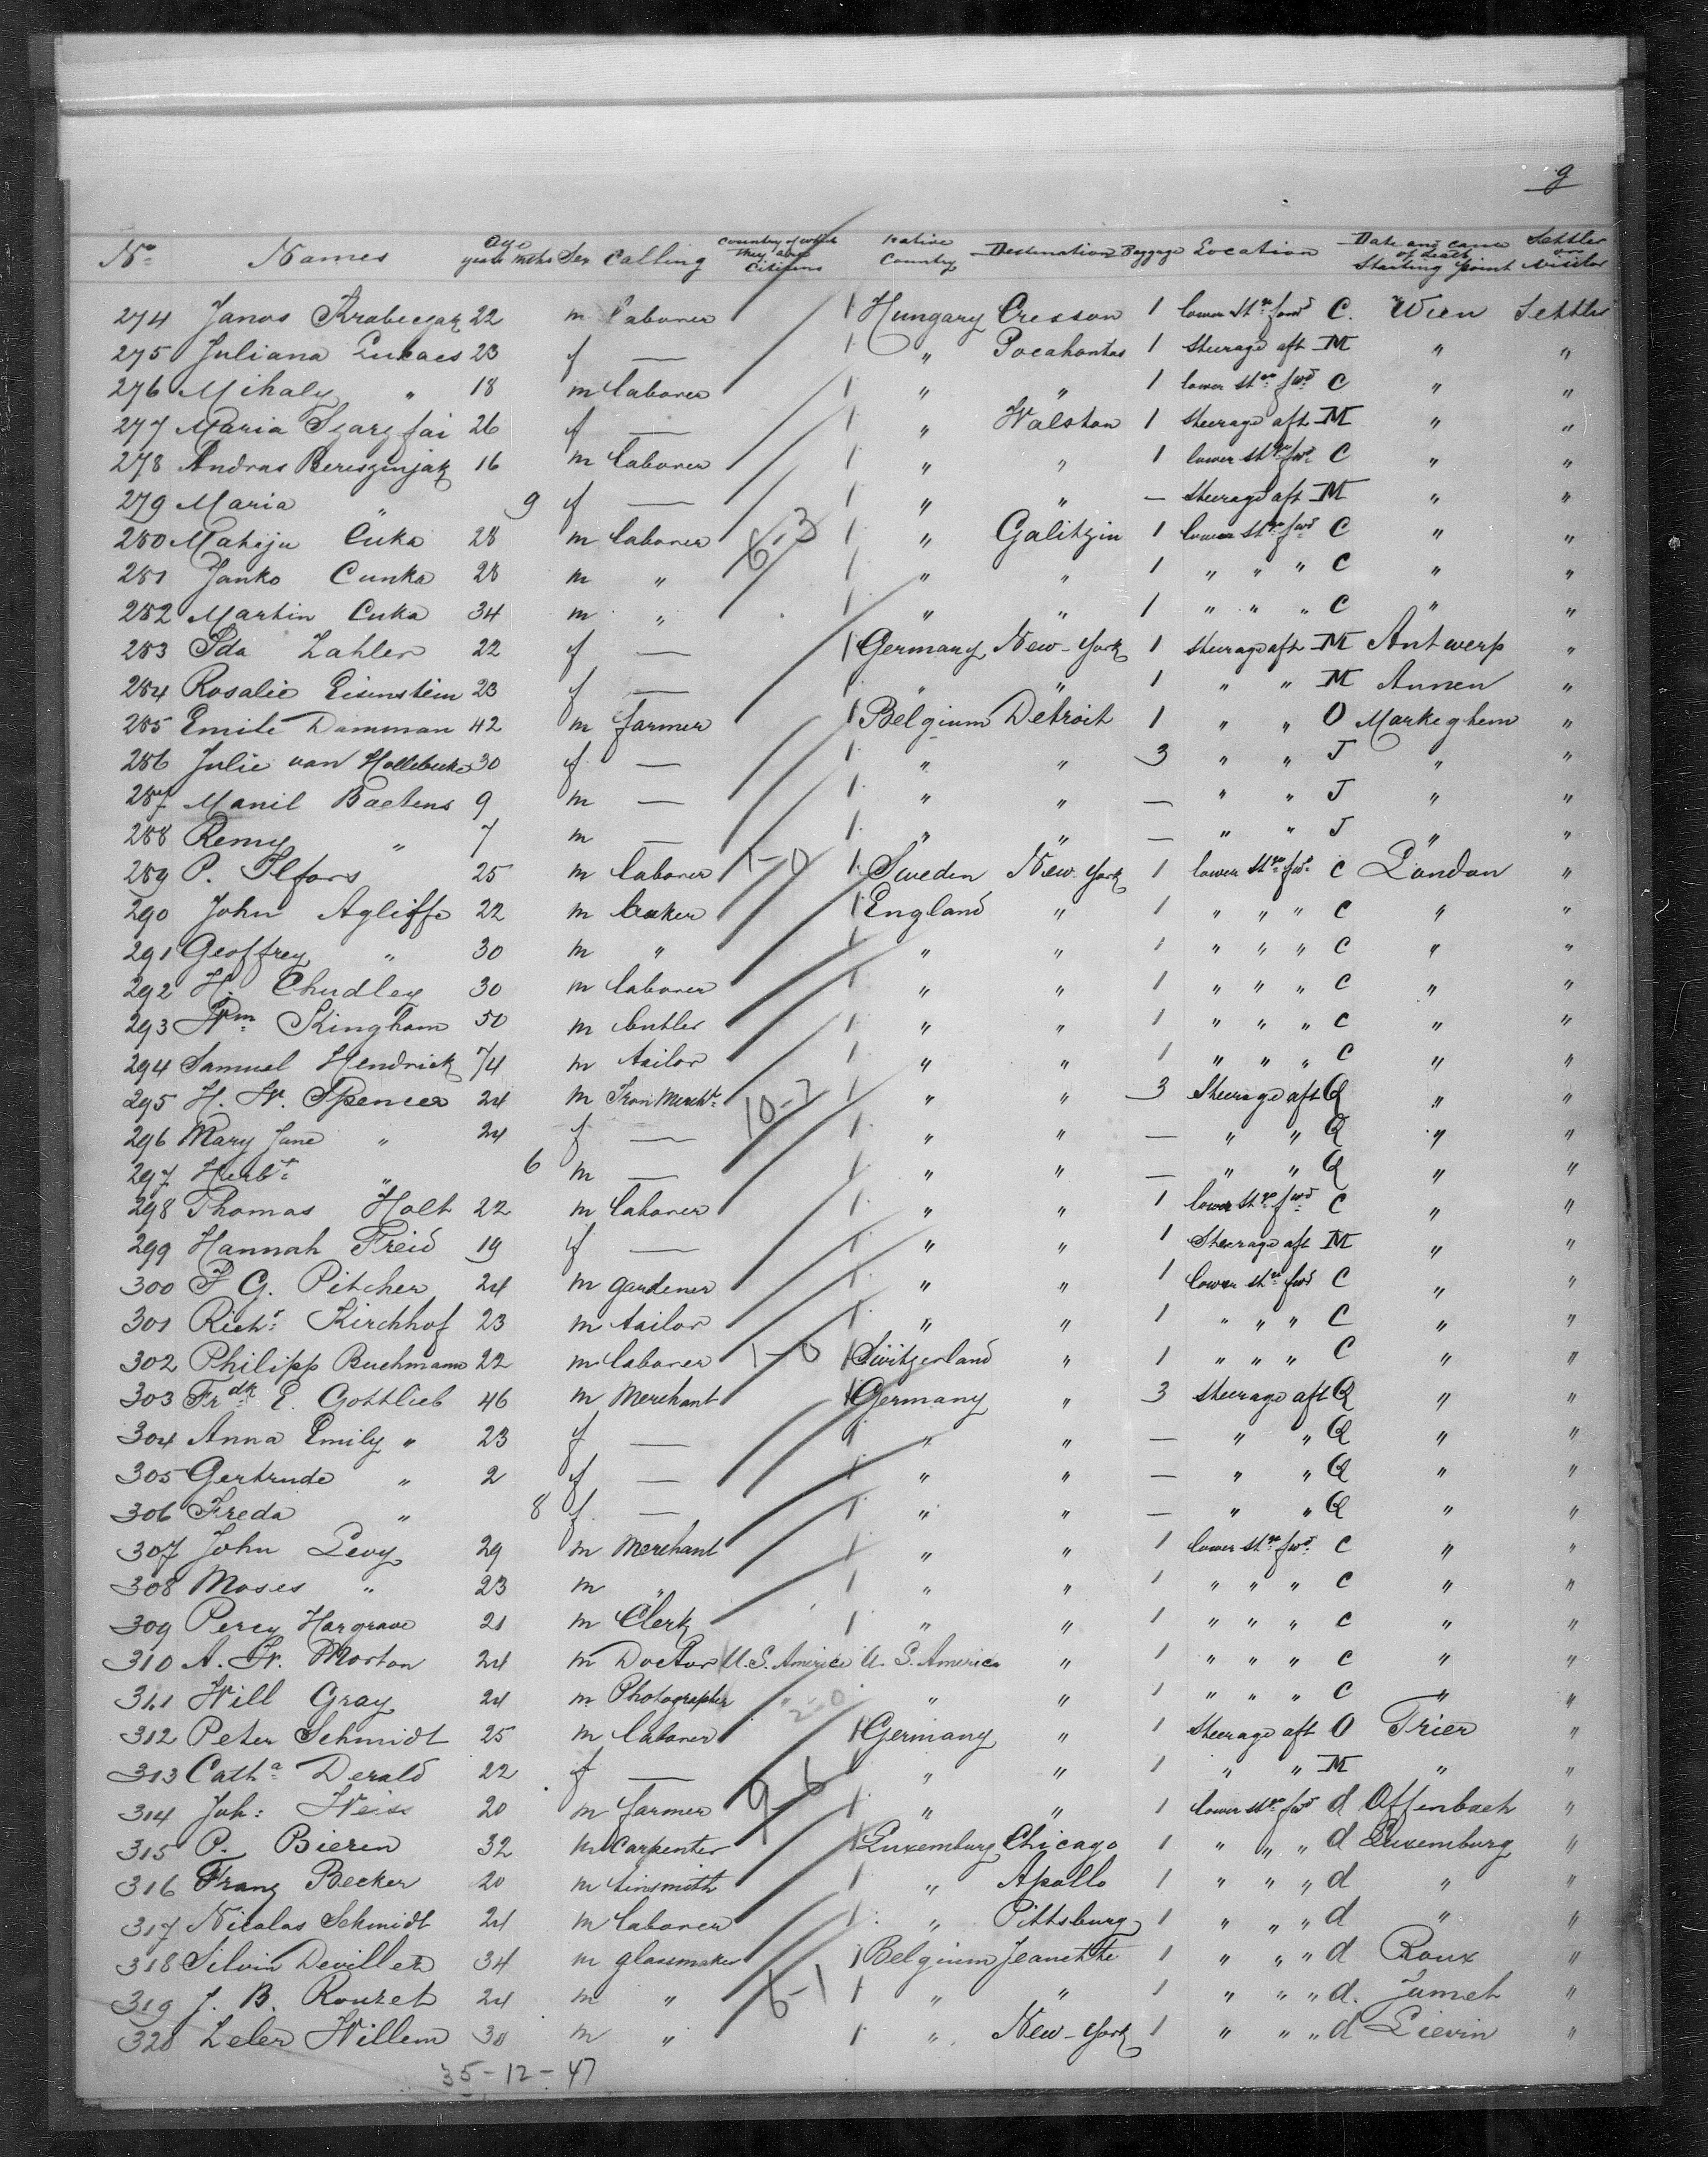 9
No Names Age years mths Sex Calling Country of which they are Citizens Native Country Destination Baggage Location Date and cause of death Starting point Settler or Visitor
274 Janos 22 m laborer 1 Hungary Cresson 1 lower Stge forwd C. Wien Settler
275 Juliana Lukacs 23 f — 1 " Pocahontas 1 Steerage aft M " "
276 Mihaly " 18 m laborer 1 " " 1 lower Stge fwd C " "
277 Maria 26 f — 1 " Walston 1 Steerage aft M " "
278 Andras 16 m laborer 1 " " 1 lower Stge fwd C " "
279 Maria " 9 f — 1 " " — Steerage aft M " "
280 Cuka 28 m laborer 6-3 1 " Galitzin 1 lower Stge fwd C " "
281 Janko Cunka 28 m " 1 " " 1 " " " C " "
282 Martin Cuka 34 m " 1 " " 1 " " " C " "
283 Ida Zahler 22 f — 1 Germany New-York 1 Steerage aft M Antwerp "
284 Rosalie Eisenstein 23 f — 1 " " 1 " " M Annen "
285 Emile Damman 42 m farmer 1 Belgium Detroit 1 " " O Markeghem "
286 Julie van 30 f — 1 " " 3 " " J " "
287 Manil Baetens 9 m — 1 " " — " " J " "
288 Remy " 7 m — 1 " " — " " J " "
289 P. Ilfors 25 m laborer 1-0 1 Sweden New-York 1 lower Stge fwd C London "
290 John Agliffe 22 m 1 England " 1 " " " C " "
291 Geoffrey " 30 m " 1 " " 1 " " " C " "
292 H. Chudley 30 m laborer 1 " " 1 " " " C " "
293 Wm Kingham 50 m butler 1 " " 1 " " " C " "
294 Samuel Hendrick 74 m tailor 1 " " 1 " " " C " "
295 H. W. Spencer 24 m Iron Mercht 10-7 1 " " 3 Steerage aft Q " "
296 Mary Jane " 24 f — 1 " " — " " Q " "
297 Herbt " 6 m — 1 " " — " " Q " "
298 Thomas Holt 22 m laborer 1 " " 1 lower Stge fwd C " "
299 Hannah Freid 19 f — 1 " " 1 Steerage aft M " "
300 F G. Pitcher 24 m gardener 1 " " 1 lower Stge fwd C " "
301 Richd Kirchhof 23 m tailor 1 " " 1 " " " C " "
302 Philipp Buchmann 22 m laborer 1-0 1 Switzerland " 1 " " " C " "
303 Frdk E. Gottlieb 46 m Merchant 1 Germany " 3 Steerage aft Q " "
304 Anna Emily " 23 f — 1 " " — " " Q " "
305 Gertrude " 2 f — 1 " " — " " Q " "
306 Freda " 8 f — 1 " " — " " Q " "
307 John Levy 29 m Merchant 1 " " 1 lower Stge fwd C " "
308 Moses " 23 m " 1 " " 1 " " " C " "
309 Percy Hargrave 21 m Clerk 1 " " 1 " " " C " "
310 A. W. Morton 24 m Doctor U.S. America U.S. America " 1 " " " C " "
311 Will Gray 24 m Photographer " 2-0 " " 1 " " " C " "
312 Peter Schmidt 25 m laborer 1 Germany " 1 Steerage aft O Trier "
313 Catha Derald 22 f — 1 " " 1 " " M " "
314 Joh: Weiss 20 m farmer 9-6 1 " " 1 lower Stge fwd d Offenbach "
315 P. Bieren 32 m Carpenter 1 Luxemburg Chicago 1 " " " d Luxemburg "
316 Franz Becker 20 m tinsmith 1 " Apollo 1 " " " d " "
317 Nicolas Schmidt 24 m laborer 1 " Pittsburg 1 " " " d " "
318 Silvin Devillez 34 m glassmaker 1 Belgium Jeanette 1 " " " d Roux "
319 J. B. Rouzet 24 m " 6-1 1 " " 1 " " " d. Jumet "
320 Zeler Willem 30 m " 1 " New-York 1 " " " d Lievin "
35-12-47